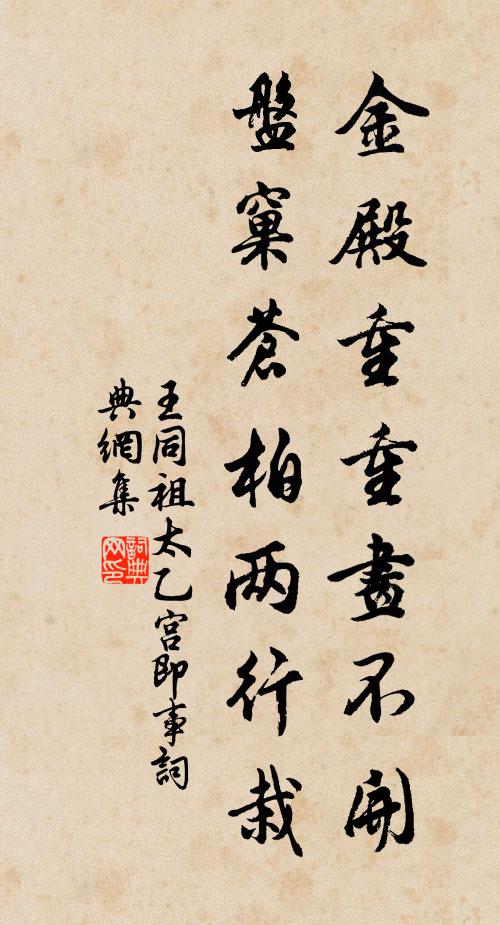 金殿重重晝不開
盤窠蒼柏兩行栽
王同祖太乙宮即事詞
典網集
詞典
网印